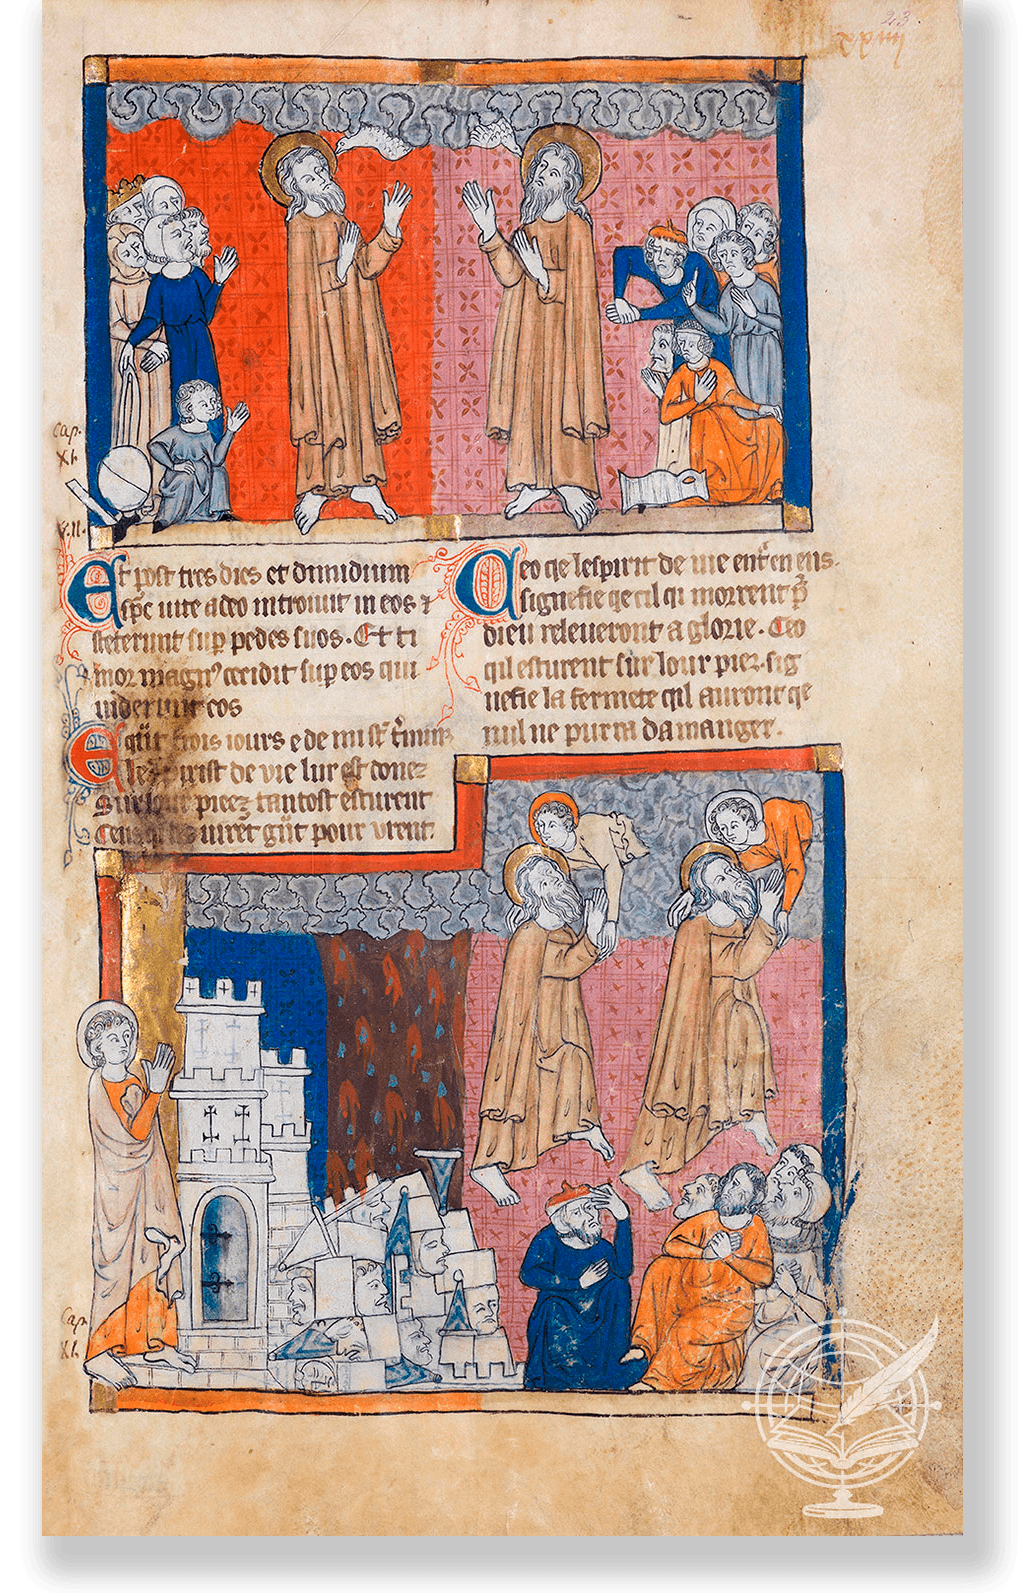 23.
xxiij
Cap.
XI.
V. 11.
Et post tres dies et dimidium
spc uite a deo introiuit in eos ⁊
steterunt sup pedes suos. Et ti
mor magnꝰ cecidit sup eos qui
uiderunt eos
E qñt trois iours e de mi
le espirit de vie lur est donez
Sur lour piez tantost esturent
Ceus qi les uirent gñt pour vrent.
Ceo qe lespirit de uie entre en eus.
signefie qe cil qi morrent p̄
dieu releueront a glorie. Ceo
qil esturent sur lour piez. sig
nefie la fermete qil auront qe
nul ne purra damauger.
Cap.
XI.